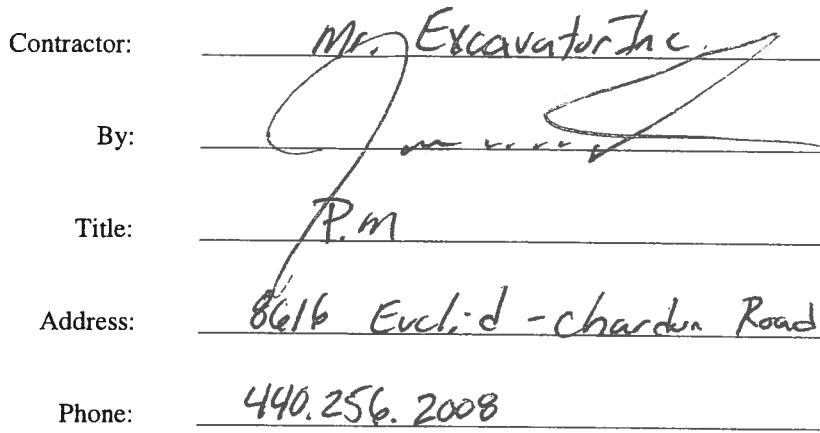 Contractor: Mr. Excavator Inc.
By:
Title: P.M
Address: 8616 Euclid - Chardon Road
Phone: 440.256.2008